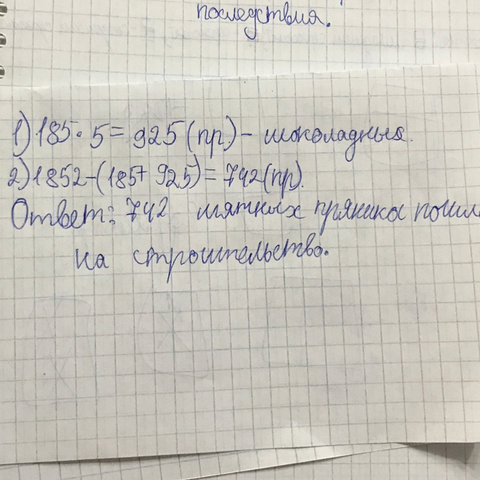 последствия.
1) 185 · 5 = 925 (пр) – шоколадных.
2) 1852 – (185 + 925) = 742 (пр).
Ответ: 742 мятных пряника
на строительство.